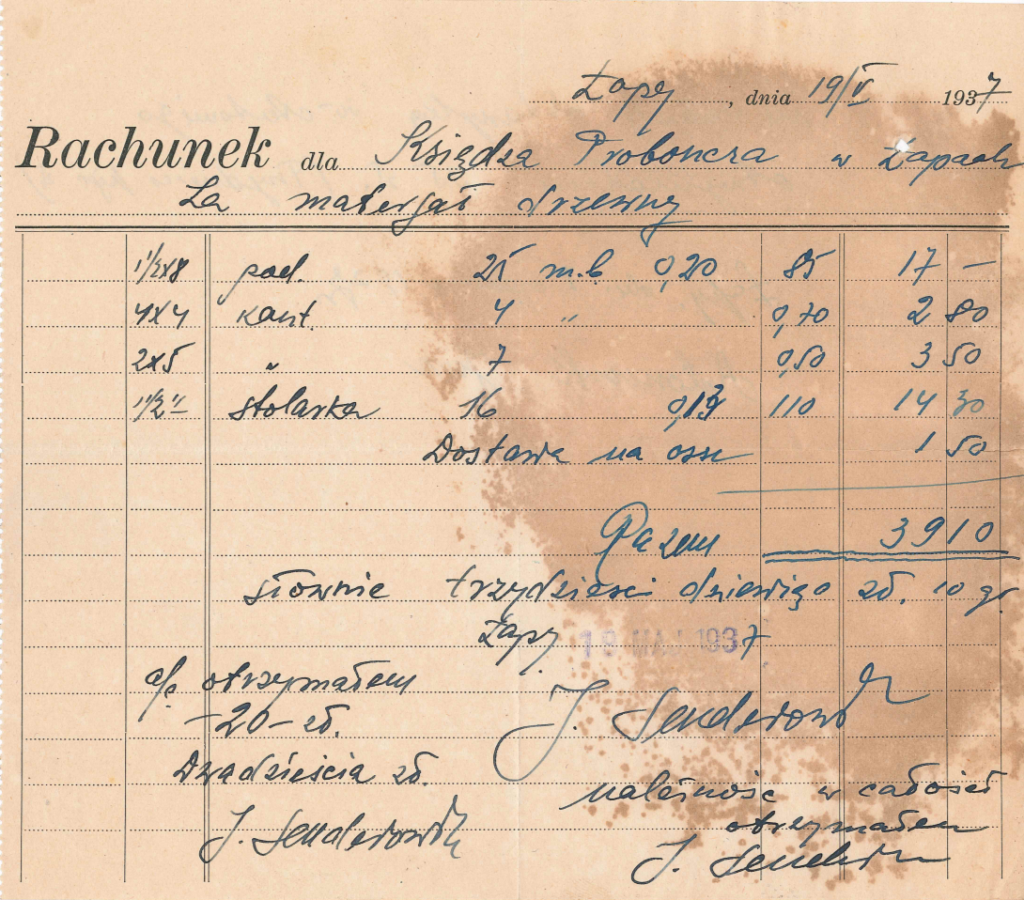 Łapy, dnia 19/V 1937
Rachunek dla Księdza Proboncza w Łapach
Za materjał drzewny
1 1/2x8 pod. 25 m.b 0,20 85 17 —
4x4 kant. 4 " 0,70 2 80
2x5 " 7 0,50 3 50
1 1/2" stolarka 16 0,13 110 14 30
Dostawa na 1 50
Razem 39 10
słownie trzydzieści dziewięć zł. 10 gr.
Łapy 19 MAJ 1937
a/c otrzymałem
—20— zł.
J. Senderowicz
Dwadzieścia zł.
należność w całości
otrzymałem
J. Senderowicz